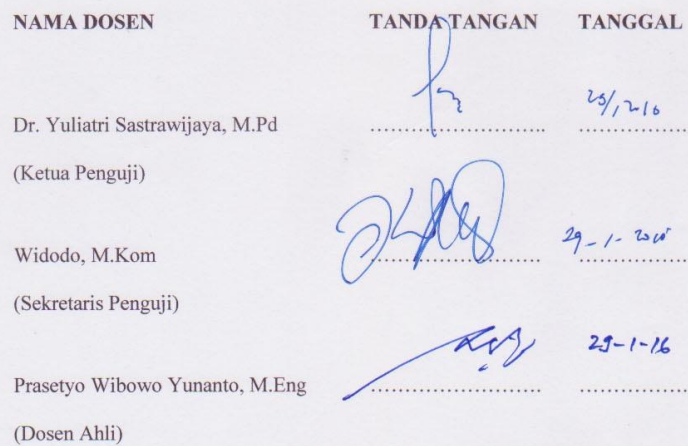 NAMA DOSEN TANDA TANGAN TANGGAL
Dr. Yuliatri Sastrawijaya, M.Pd ........................... ...................
(Ketua Penguji)
Widodo, M.Kom ........................... 29-1-
(Sekretaris Penguji)
29-1-16
Prasetyo Wibowo Yunanto, M.Eng ........................... ...................
(Dosen Ahli)